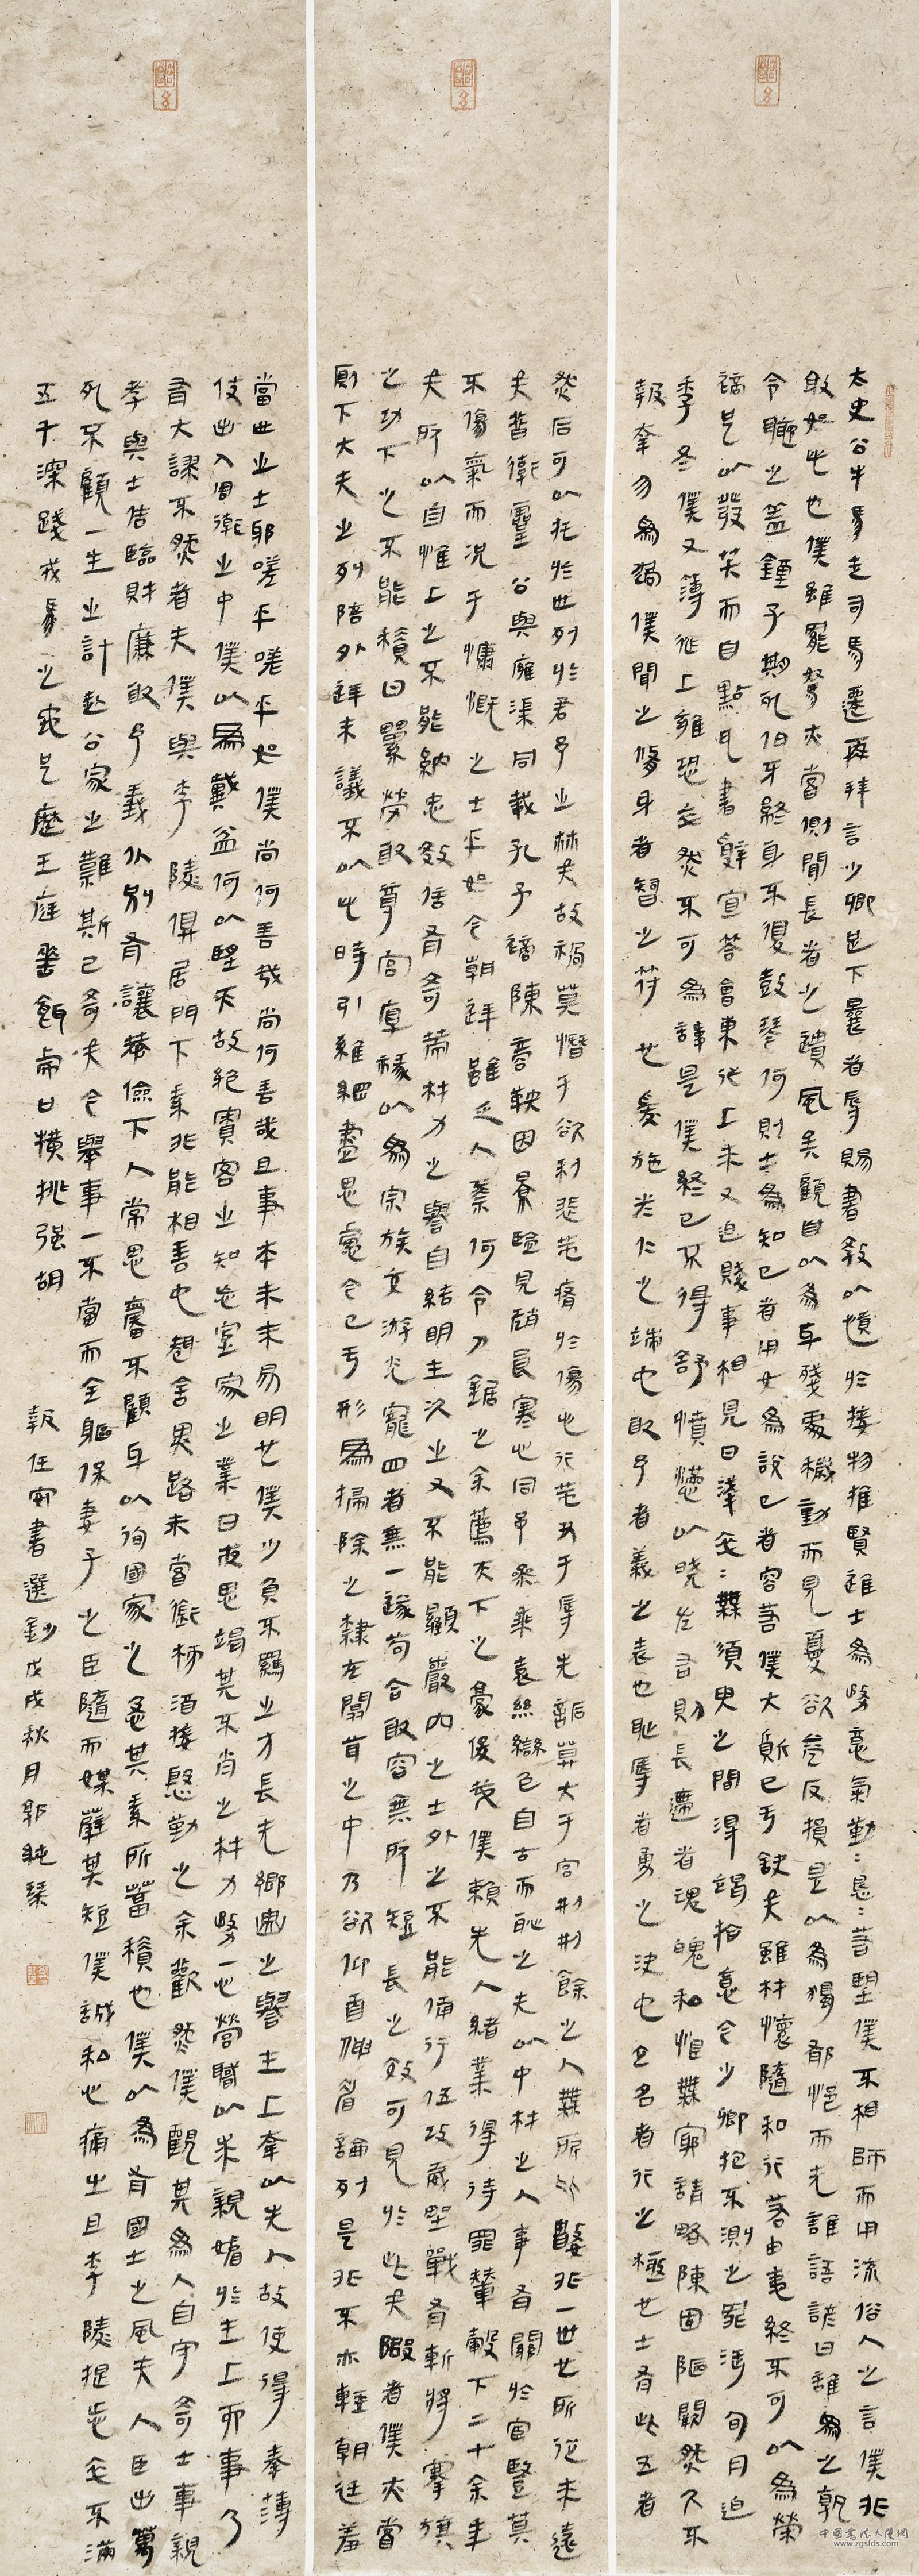 太史公牛馬走司馬遷再拜言少卿足下曩者辱賜書教以慎於接物推賢進士為務意氣勤〻懇〻若望僕不相師而用流俗人之言僕非
敢如此也僕雖罷駑亦嘗側聞長者之遺風矣顧自以為身殘處穢動而見憂欲益反損是以為獨郁悒而無誰語諺曰誰為為之孰
令聽之蓋鍾子期死伯牙終身不復鼓琴何則士為知己者用女為說己者容若僕大質已虧缺夫雖材懷隨和行若由夷終不可以為榮
適足以發笑而自點耳書辭宜答會東從上來又迫賤事相見日淺卒〻無須臾之間得竭指意今少卿抱不測之罪涉旬月迫
季冬僕又薄從上雍恐卒然不可為諱是僕終已不得舒憤懣以曉左右則長逝者魂魄私恨無窮請略陳固陋闕然久不
報幸勿為過僕聞之修身者智之符也愛施者仁之端也取予者義之表也恥辱者勇之決也立名者行之極也士有此五者
然后可以托於世列於君子之林矣故禍莫憯于欲利悲莫痛於傷心行莫丑于辱先詬莫大于宮刑刑餘之人無所比數非一世也所從來遠
矣昔衛靈公與雍渠同載孔子適陳商鞅因景監見趙良寒心同子參乘袁絲變色自古而恥之夫以中材之人事有關於宦豎莫
不傷氣而況于慷慨之士乎如今朝廷雖乏人奈何令刀鋸之余薦天下之豪俊哉僕賴先人緒業得待罪輦轂下二十余年
矣所以自惟上之不能納忠效信有奇策材力之譽自結明主次之又不能顯巖穴之士外之不能備行伍攻城野戰有斬將搴旗
之功下之不能積日累勞取尊官厚祿以為宗族交游光寵四者無一遂苟合取容無所短長之效可見於此矣向者僕亦嘗
廁下大夫之列陪外廷末議不以此時引維綱盡思慮今已虧形為掃除之隸在闒茸之中乃欲仰首伸眉論列是非不亦輕朝廷羞
當世之士邪嗟乎嗟乎如僕尚何言哉尚何言哉且事本末未易明也僕少負不羈之才長無鄉曲之譽主上幸以先人故使得奉薄
伎出入周衛之中僕以為戴盆何以望天故絕賓客之知忘室家之業日夜思竭其不肖之材力務一心營職以求親媚於主上而事乃
有大謬不然者夫僕與李陵俱居門下素非能相善也趣舍異路未嘗銜杯酒接慇勤之余歡然僕觀其為人自守奇士事親
孝與士信臨財廉取予義分別有讓恭儉下人常思奮不顧身以徇國家之急其素所蓄積也僕以為有國士之風夫人臣出萬
死不顧一生之計赴公家之難斯已奇矣今舉事一不當而全軀保妻子之臣隨而媒孽其短僕誠私心痛之且李陵提步卒不滿
五千深踐戎馬之地足歷王庭垂餌虎口橫挑強胡
報任安書選鈔戊戌秋月郭純琛
中國書法大廈網
www.zgsfds.com